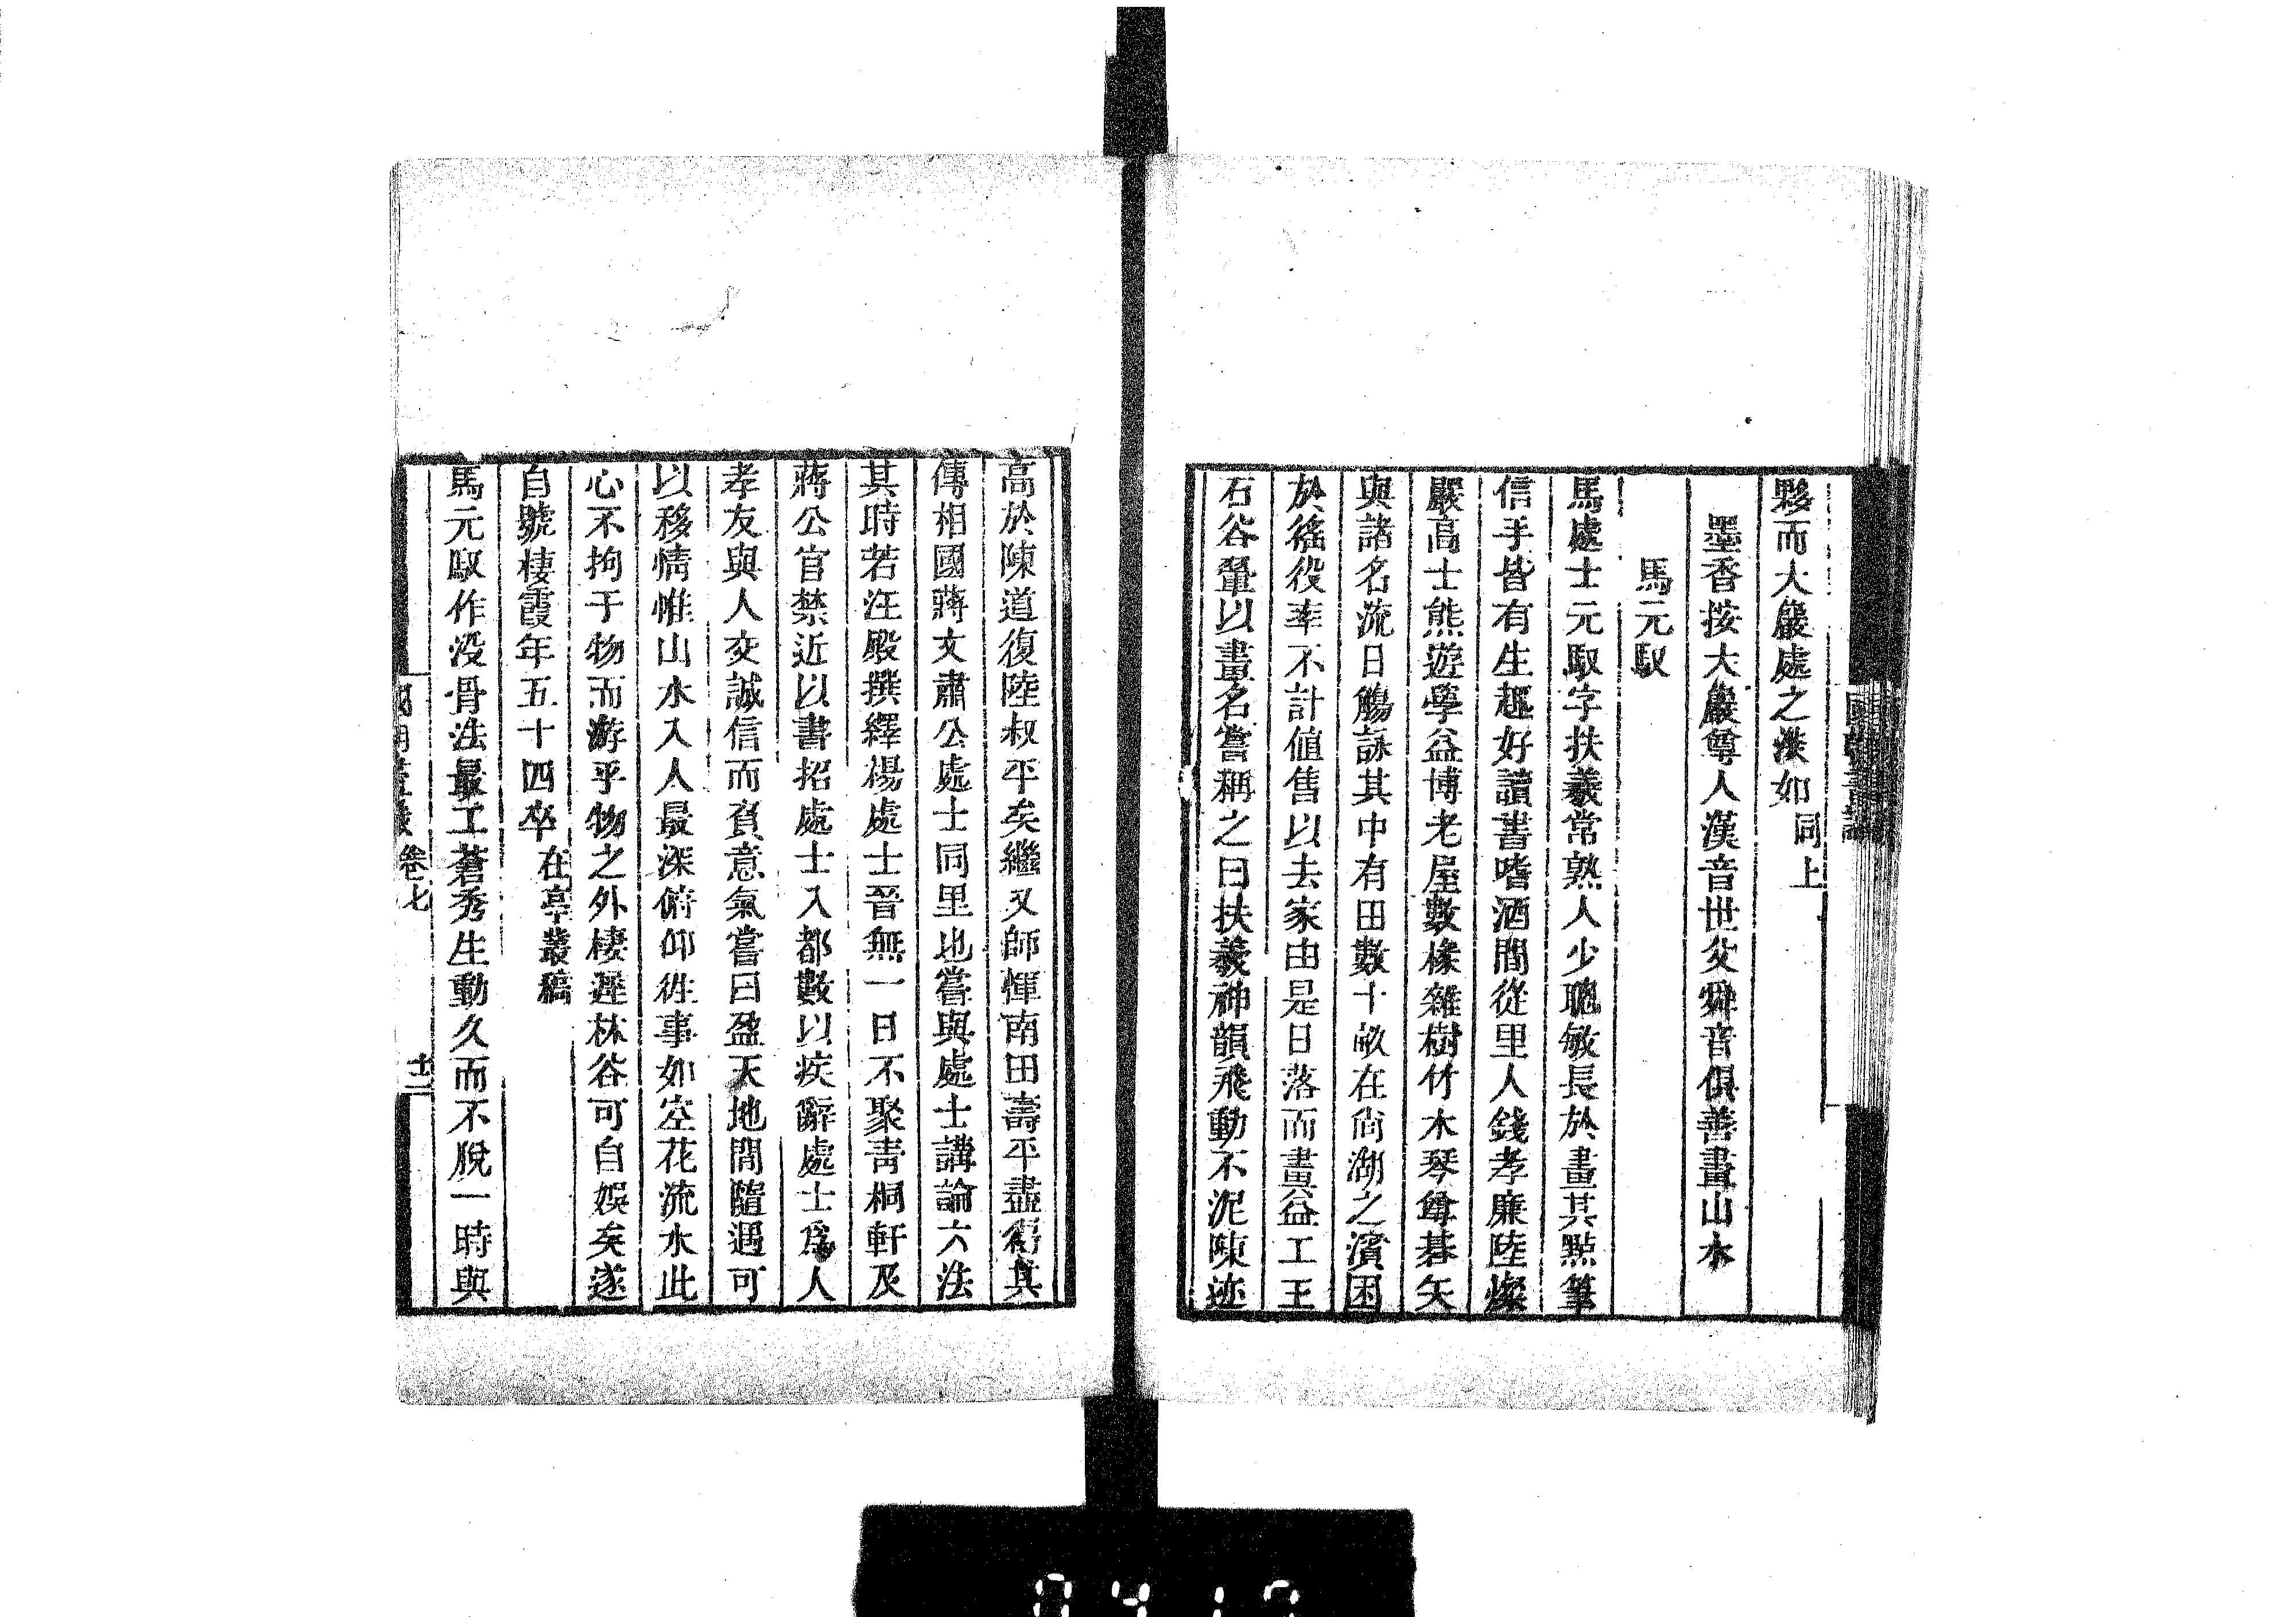 夥而大巖處之淡如同上
墨香按大巖尊人漢音世父舜音俱善畫山水
馬元馭
馬處士元馭字扶羲常熟人少聰敏長於畫其點筆
信手皆有生趣好讀書嗜酒間從里人錢孝廉陸燦
嚴高士熊遊學益博老屋數椽雜樹竹木琴尊碁矢
與諸名流日觴詠其中有田數十畝在尚湖之濱困
於徭役率不計值售以去家由是日落而畫益工王
石谷翬以畫名嘗稱之曰扶羲神韻飛動不泥陳迹
高於陳道復陸叔平矣繼又師惲南田壽平盡得其
傳相國蔣文肅公處士同里也嘗與處士講論六法
其時若汪殿撰繹楊處士晉無一日不聚青桐軒及
蔣公官禁近以書招處士入都數以疾辭處士爲人
孝友與人交誠信而負意氣嘗曰盈天地間隨遇可
以移情惟山水入人最深俯仰徃事如空花流水此
心不拘于物而游乎物之外棲遲林谷可自娛矣遂
自號棲霞年五十四卒在亭叢稿
馬元馭作没骨法最工蒼秀生動久而不脫一時與
卷七
十二